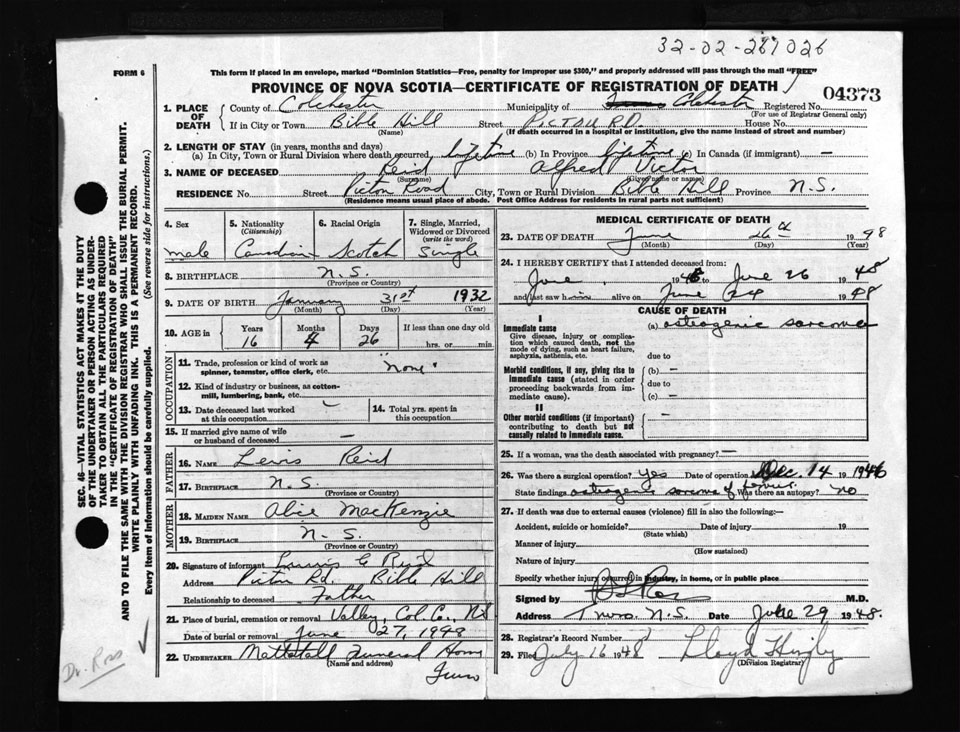 32-02-267026
FORM 6
This form if placed in an envelope, marked "Dominion Statistics—Free, penalty for improper use $300," and properly addressed will pass through the mail "FREE"
PROVINCE OF NOVA SCOTIA—CERTIFICATE OF REGISTRATION OF DEATH
04373
1. PLACE OF DEATH
County of Colchester Municipality of Colchester Registered No.
(For use of Registrar General only)
If in City or Town Bible Hill Street PICTOU RD. House No.
(Name) (If death occurred in a hospital or institution, give the name instead of street and number)
2. LENGTH OF STAY (in years, months and days)
(a) In City, Town or Rural Division where death occurred lifetime (b) In Province lifetime (c) In Canada (if immigrant) —
3. NAME OF DECEASED Reid Alfred Victor
(Surname) (Given name or names)
RESIDENCE No. Street Pictou Road City, Town or Rural Division Bible Hill Province N.S.
(Residence means usual place of abode. Post Office Address for residents in rural parts not sufficient)
4. Sex
male
5. Nationality
(Citizenship)
Canadian
6. Racial Origin
Scotch
7. Single, Married, Widowed or Divorced
(write the word)
Single
8. BIRTHPLACE N.S.
(Province or Country)
9. DATE OF BIRTH January 31st 1932
(Month) (Day) (Year)
10. AGE in
Years Months Days If less than one day old
16 4 26 hrs. or min.
OCCUPATION
11. Trade, profession or kind of work as spinner, teamster, office clerk, etc. "None"
12. Kind of industry or business, as cotton-mill, lumbering, bank, etc.
13. Date deceased last worked at this occupation
14. Total yrs. spent in this occupation
15. If married give name of wife or husband of deceased —
FATHER
16. NAME Lewis Reid
17. BIRTHPLACE N.S.
(Province or Country)
MOTHER
18. MAIDEN NAME Alice MacKenzie
19. BIRTHPLACE N-S.
(Province or Country)
20. Signature of informant Lewis G Reid
Address Pictou Rd. Bible Hill
Relationship to deceased Father
21. Place of burial, cremation or removal Valley, Col. Co., NS
Date of burial or removal June 27, 1948
22. UNDERTAKER Mattatall Funeral Home
(Name and address)
Truro
MEDICAL CERTIFICATE OF DEATH
23. DATE OF DEATH June 26th 1948
(Month) (Day) (Year)
24. I HEREBY CERTIFY that I attended deceased from:
June 1948 to June 26 1948
and last saw him alive on June 24 1948
CAUSE OF DEATH
I
Immediate cause
Give disease, injury or complication which caused death, not the mode of dying, such as heart failure, asphyxia, asthenia, etc.
(a) osteogenic sarcoma
due to
Morbid conditions, if any, giving rise to immediate cause (stated in order proceeding backwards from immediate cause).
(b) —
due to
(c) —
II
Other morbid conditions (if important) contributing to death but not causally related to immediate cause.
—
25. If a woman, was the death associated with pregnancy? —
26. Was there a surgical operation? Yes Date of operation Dec. 14 1946
State findings osteogenic sarcoma of femur. Was there an autopsy? no
27. If death was due to external causes (violence) fill in also the following:—
Accident, suicide or homicide? Date of injury 19
(State which)
Manner of injury
(How sustained)
Nature of injury
Specify whether injury occurred in industry, in home, or in public place
Signed by Ross M.D.
Address Truro N.S. Date June 29 1948.
28. Registrar's Record Number
29. Filed July 16 1948 Lloyd
(Division Registrar)
SEC. 46—VITAL STATISTICS ACT MAKES IT THE DUTY
OF THE UNDERTAKER OR PERSON ACTING AS UNDER-
TAKER TO OBTAIN ALL THE PARTICULARS REQUIRED
IN THE "CERTIFICATE OF REGISTRATION OF DEATH"
AND TO FILE THE SAME WITH THE DIVISION REGISTRAR WHO SHALL ISSUE THE BURIAL PERMIT.
WRITE PLAINLY WITH UNFADING INK. THIS IS A PERMANENT RECORD.
Every item of information should be carefully supplied. (See reverse side for instructions.)
Dr. Ross